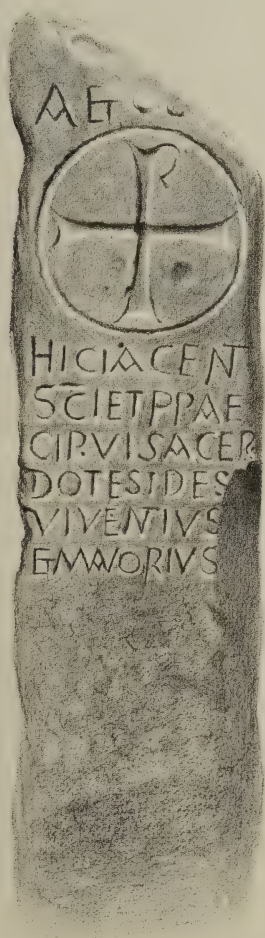 A ET
HIC IACENT
SCI ET PPAE
CIPVI SACER
DOTES IDES
VIVENTIVS
ET MAVORIVS